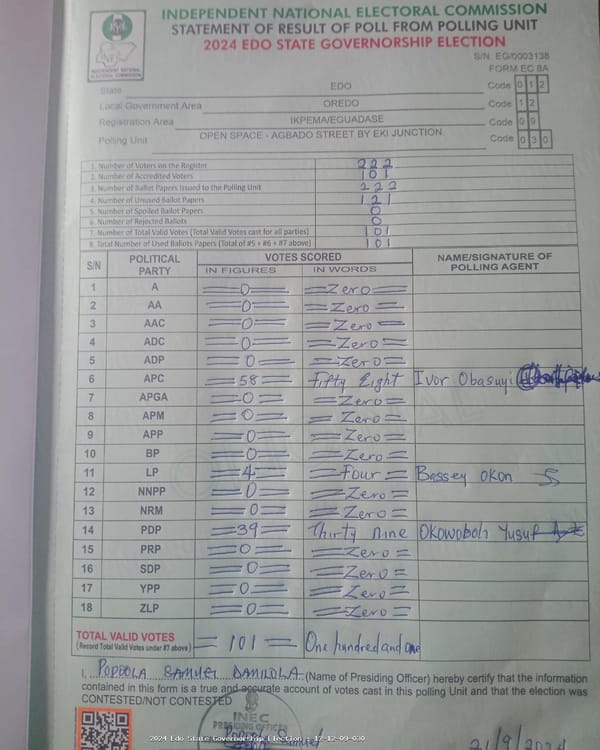 INDEPENDENT NATIONAL ELECTORAL COMMISSION
STATEMENT OF RESULT OF POLL FROM POLLING UNIT
2024 EDO STATE GOVERNORSHIP ELECTION
S/N: EG/0003138
FORM EC 8A
INDEPENDENT NATIONAL ELECTORAL COMMISSION
State EDO Code 0 1 2
Local Government Area OREDO Code 1 2
Registration Area IKPEMA/EGUADASE Code 0 9
Polling Unit OPEN SPACE - AGBADO STREET BY EKI JUNCTION Code 0 3 0
1. Number of Voters on the Register 222
2. Number of Accredited Voters 101
3. Number of Ballot Papers Issued to the Polling Unit 222
4. Number of Unused Ballot Papers 121
5. Number of Spoiled Ballot Papers 0
6. Number of Rejected Ballots 0
7. Number of Total Valid Votes (Total Valid Votes cast for all parties) 101
8. Total Number of Used Ballots Papers (Total of #5 + #6 + #7 above) 101
S/N POLITICAL PARTY VOTES SCORED NAME/SIGNATURE OF POLLING AGENT
IN FIGURES IN WORDS
1 A =0= =Zero=
2 AA =0= =Zero=
3 AAC =0= =Zero=
4 ADC =0= =Zero=
5 ADP =0= =Zero=
6 APC =58= Fifty Eight Ivor Obasuyi
7 APGA =0= =Zero=
8 APM =0= =Zero=
9 APP =0= =Zero=
10 BP =0= =Zero=
11 LP =4= =Four= Bassey Okon
12 NNPP =0= =Zero=
13 NRM =0= =Zero=
14 PDP =39= Thirty nine Okowoboh Yusuf
15 PRP =0= =Zero=
16 SDP =0= =Zero=
17 YPP =0= =Zero=
18 ZLP =0= =Zero=
TOTAL VALID VOTES =101= One hundred and one
(Record Total Valid Votes under #7 above)
I, POPOOLA SAMUEL DAMILOLA (Name of Presiding Officer) hereby certify that the information
contained in this form is a true and accurate account of votes cast in this polling Unit and that the election was
CONTESTED/NOT CONTESTED
INEC
PRESIDING OFFICER
2024 Edo State Governorship Election : 12-12-09-030
21/9/2024